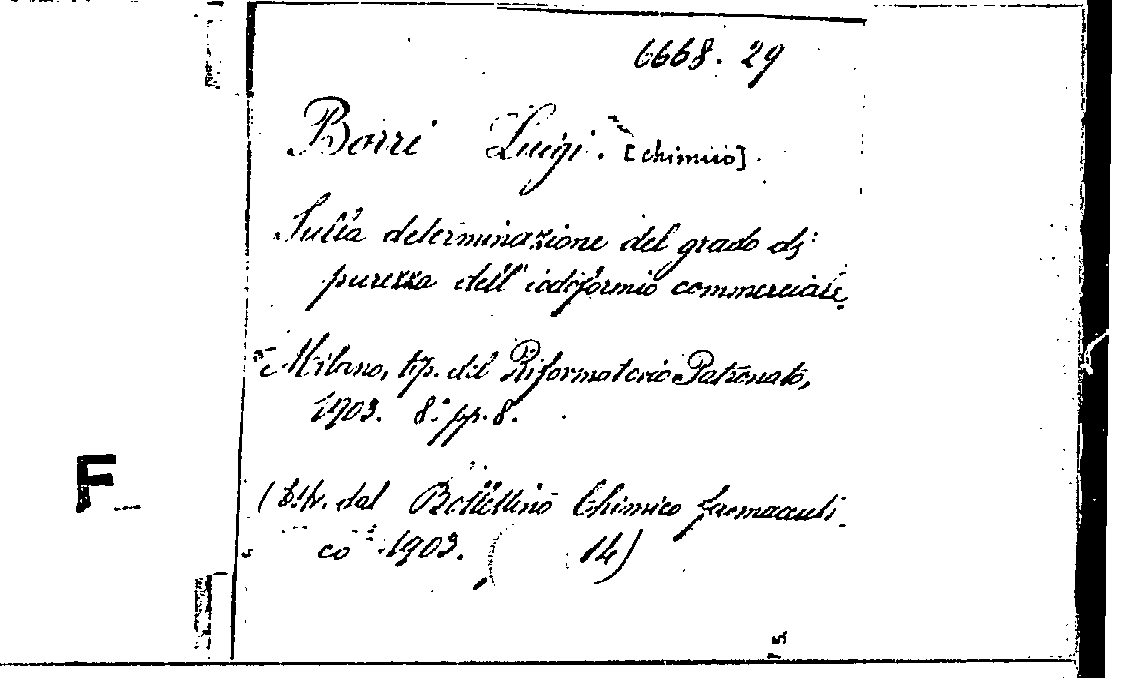 6668.29
Borri Luigi. [chimico].
Sulla determinazione del grado di
purezza dell'iodoformio commerciale.
Milano, tip. del Riformatorio Patronato,
1903. 8.° pp. 8.
(Estr. dal Bollettino Chimico farmaceuti-
co 1903. ( 14)
F
15.